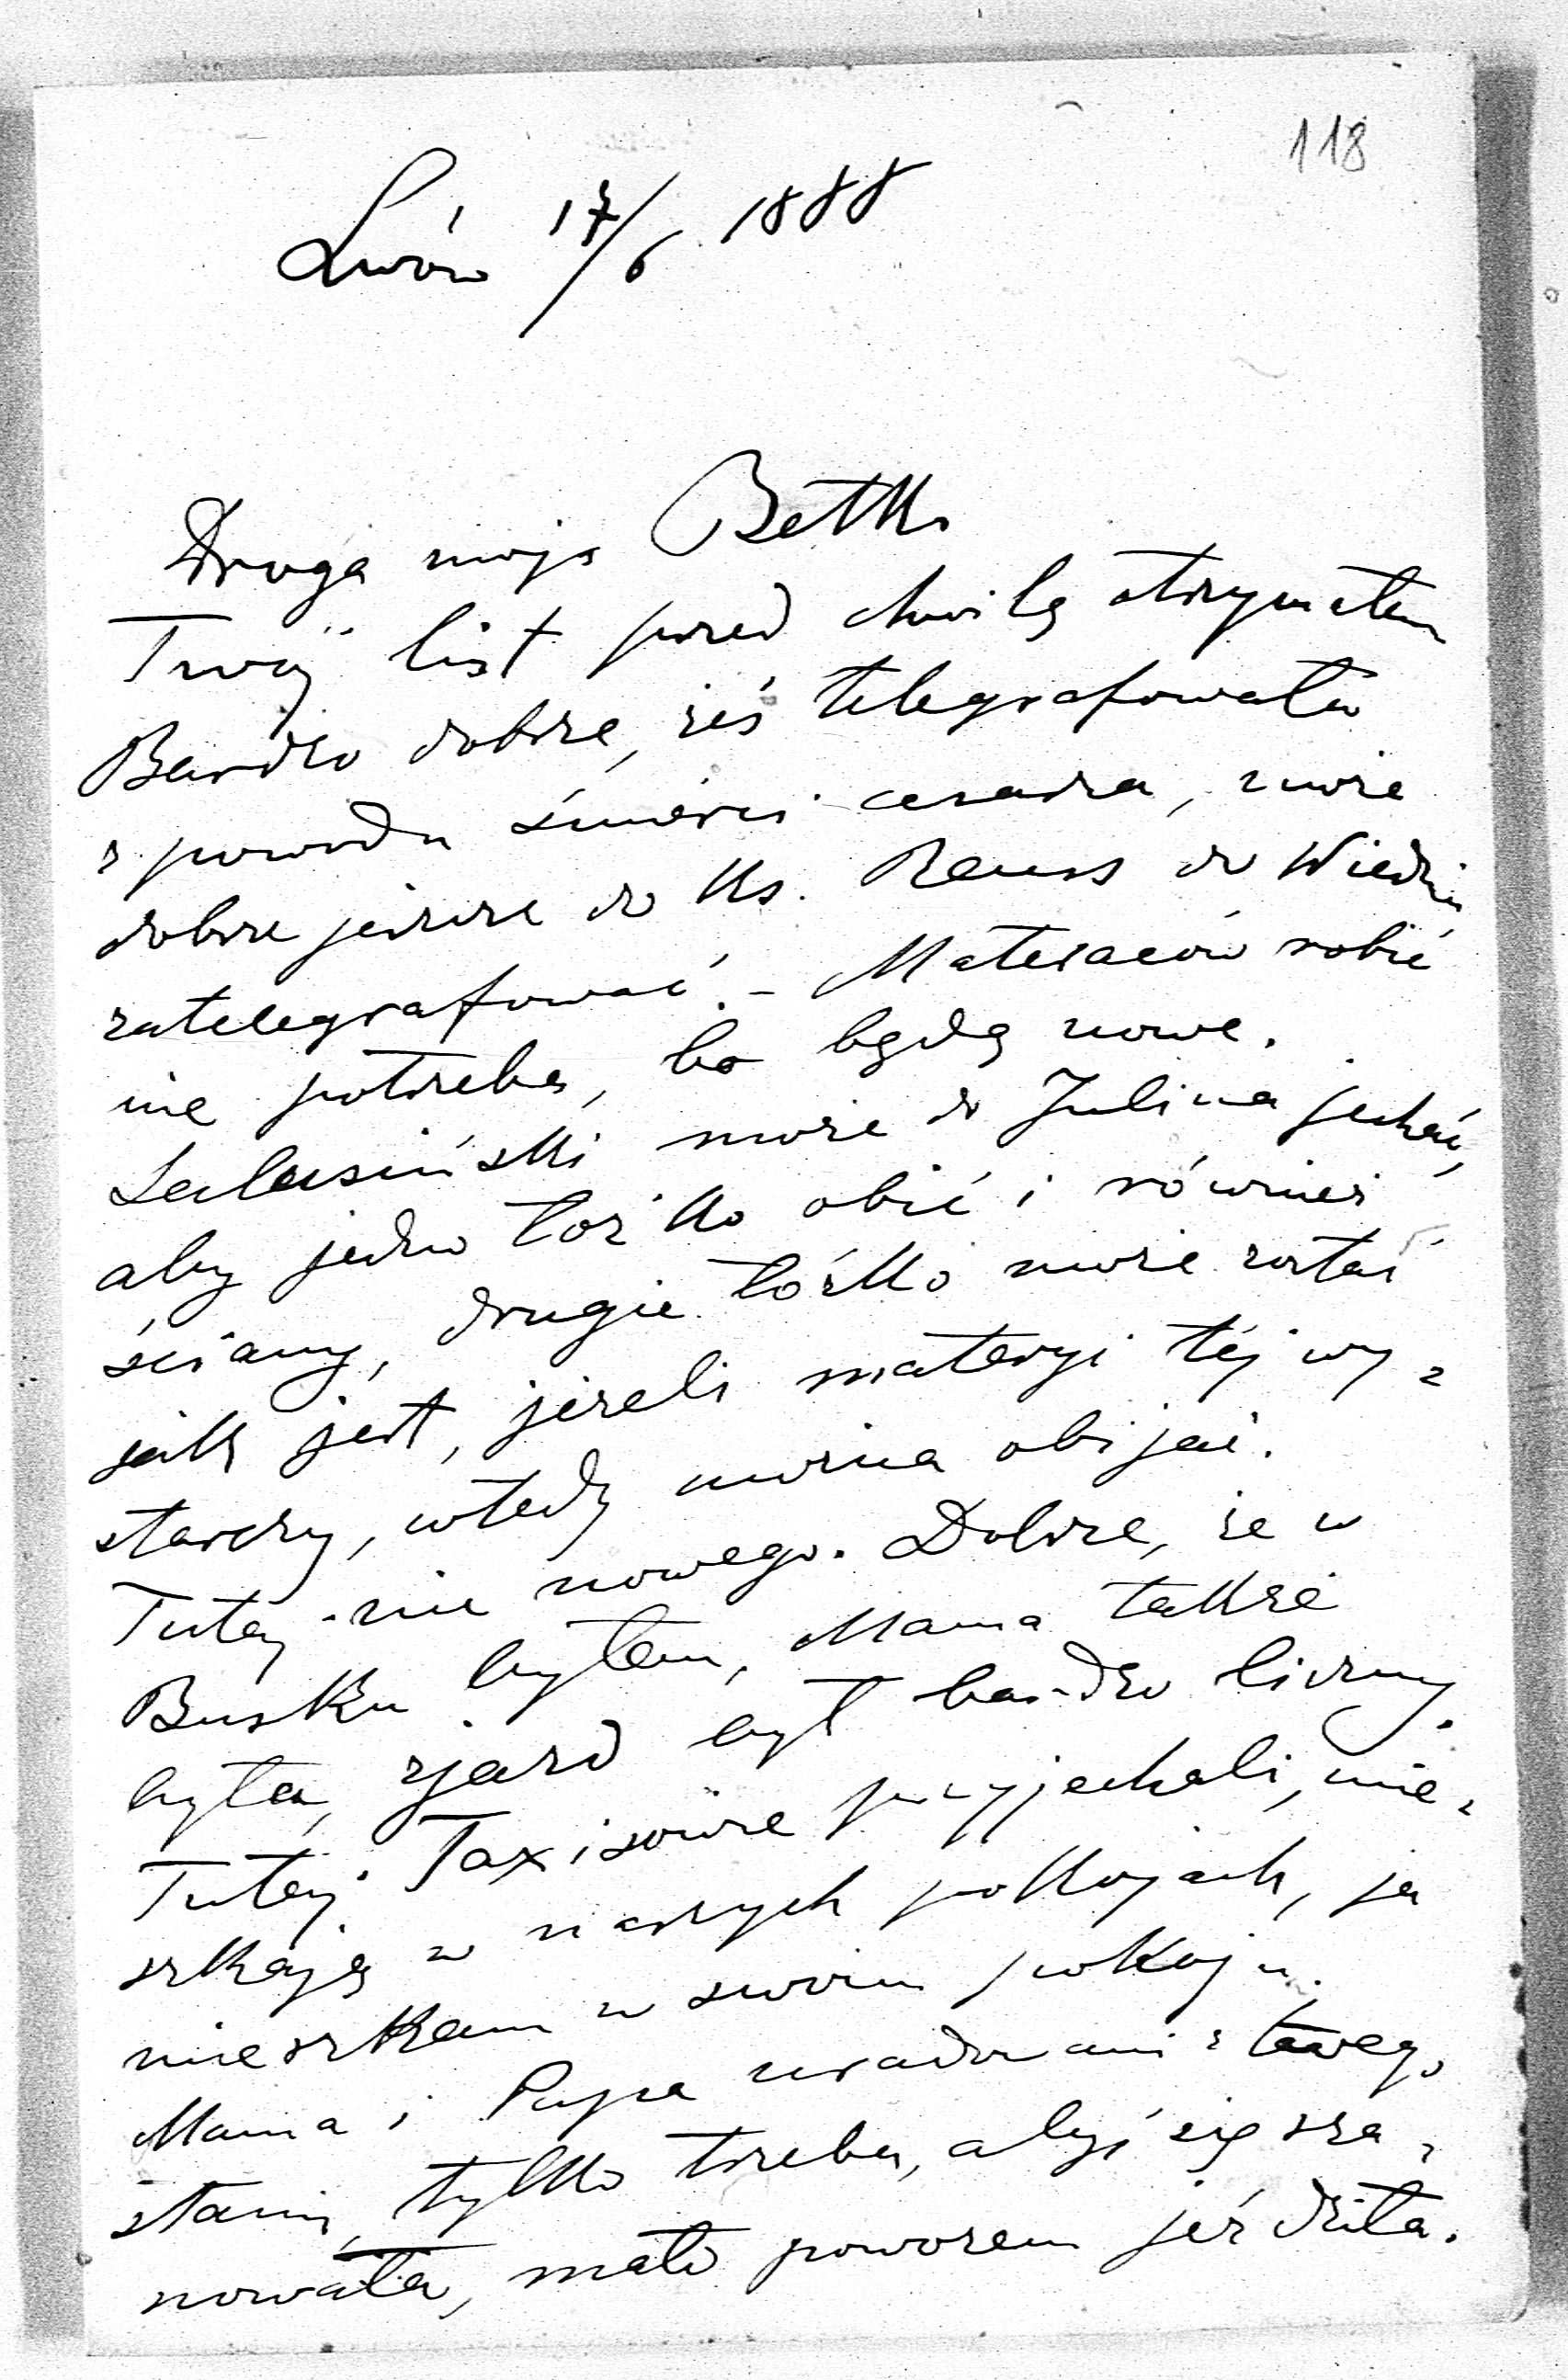 118
Lwów 17/6 1888
Droga moja Betko
Twój list przed chwilą otrzymałem
Bardzo dobrze, żeś telegrafowała
z powodu śmierci cesarza, może
dobrze jeszcze do Ks. Reuss do Wiednia
zatelegrafować. – Materaców robić
nie potrzeba, bo będą nowe.
może do Julina jechać,
aby jedno łóżko obić i również
ściany, drugie łóżko może zostać
jak jest, jeżeli materyi téj wy=
starczy, wtedy można obijać.
Tutaj nic nowego. Dobrze, że w
Busku byłem, Mama także
była, zjazd był bardzo liczny.
Tutaj Taxisowie przyjechali, mie=
szkają w naszych pokojach, ja
mieszkam w swoim pokoju.
Mama i Papa uradowani z twego
stanu, tylko trzeba, abyś się sza=
nowała, mało powozem jeździła.